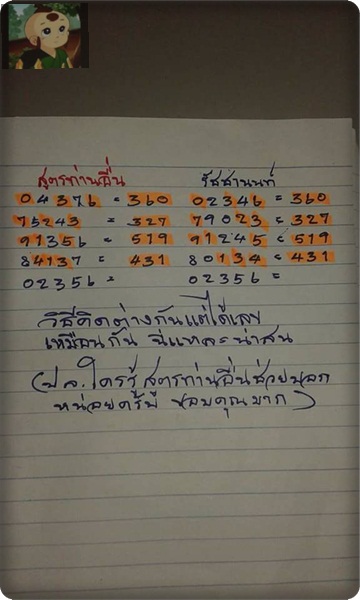 สูตรท่านอื่น รัชชานนท์
04376 = 360 02346 = 360
75243 = 327 79023 = 327
91356 = 519 91245 = 519
84137 = 431 80134 = 431
02356 = 02356 =
วิธีคิดต่างกันแต่ได้เลข
เหมือนกัน นี่แหละน่าสน
(ป.ล. ใครรู้ สูตรท่านอื่นช่วยบอก
หน่อยครับ ขอบคุณมาก)